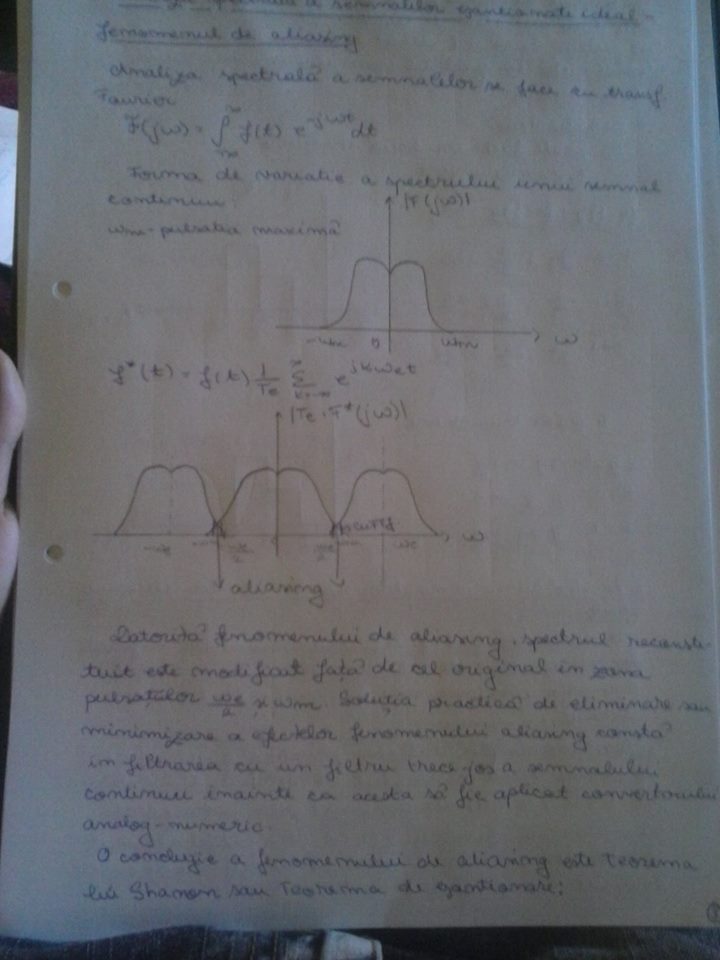 spectrală a semnalelor eșantionate ideal -
fenomenul de aliasing
Analiza spectrală a semnalelor se face cu transf.
Fourier
F(jω) = ∫ f(t) e^-jωt dt
Forma de variație a spectrului unui semnal
continuu:
|F(jω)|
ωm - pulsația maximă
-ωm 0 ωm ω
f*(t) = f(t) 1/Te Σ k=-∞ ∞ e^jkωet
|Te·F*(jω)|
-ωe -ωe/2 ωe/2 ωe ω
aliasing
Datorită fenomenului de aliasing, spectrul reconsti-
tuit este modificat față de cel original în zona
pulsațiilor ωe/2 și ωm. Soluția practică de eliminare sau
minimizare a efectelor fenomenului aliasing constă
în filtrarea cu un filtru trece-jos a semnalului
continuu înainte ca acesta să fie aplicat convertorului
analog-numeric.
O concluzie a fenomenului de aliasing este Teorema
lui Shanon sau Teorema de eșantionare: